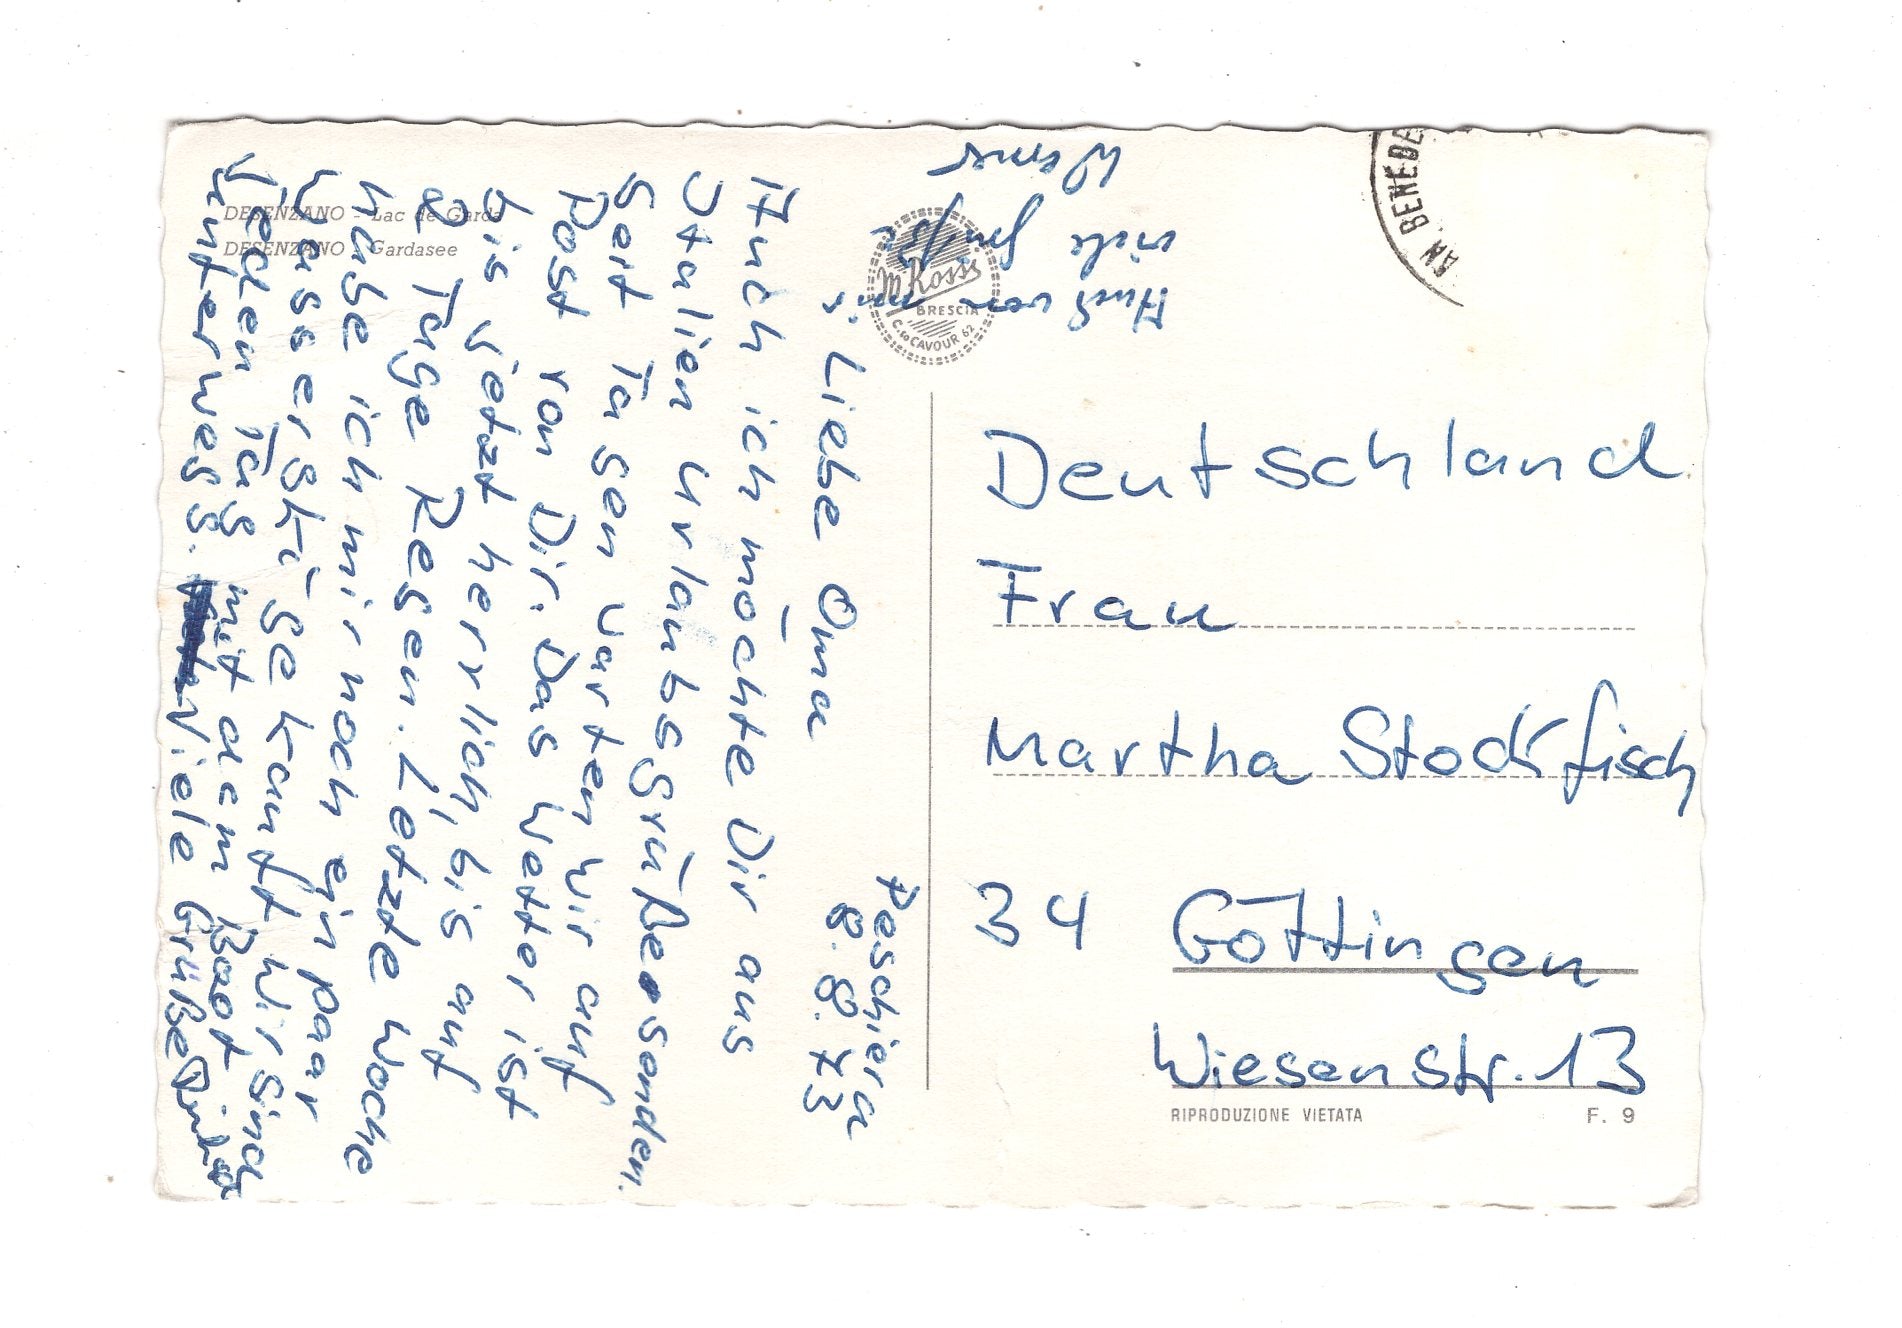 DESENZANO - Lac de Garda
DESENZANO - Gardasee
Peschiera
8.8.73
Liebe Oma
Auch ich möchte Dir aus
Italien Urlaubsgrüße senden.
Seit Tagen varten wir auf
Post von Dir. Das Wetter ist
bis jetzt herrlich, bis auf
2 Tage Regen. Letzte Woche
habe ich mir noch ein paar
Wasserskiíse kauft. Wir sind
jeden Tag mit dem Boot
unterwegs. Viele Grüße
Auch von mir
viele Grüße
Werner
M. Rossi
BRESCIA
C.so CAVOUR 62
AN BENEDE
Deutschland
Frau
Martha Stockfisch
34 Göttingen
Wiesenstr. 13
RIPRODUZIONE VIETATA
F. 9